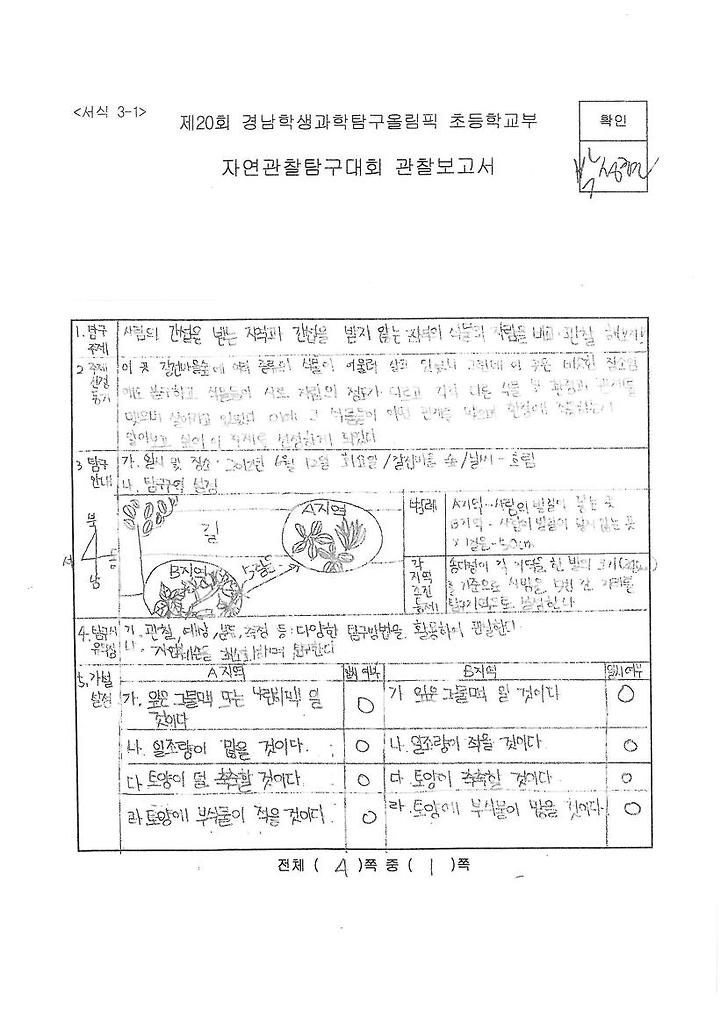 <서식 3-1>
제20회 경남학생과학탐구올림픽 초등학교부
확인
자연관찰탐구대회 관찰보고서
1. 탐구 주제
사람의 간섭을 받는 지역과 간섭을 받지 않는 지역의 식물의 자람을 비교 관찰 해보기
2 주제 선정 동기
이 곳 갈전마을숲에 여러 종류의 식물이 어울려 살고 있었다 그런데 이 곳은 비슷한 장소임
에도 불구하고 식물들이 서로 자람의 정도가 다르고 각각 다른 식물 및 환경과 관계를
맺으며 살아가고 있었다 이에 그 식물들이 어떤 관계를 맺으며 환경에 적응하는지
알아보고 싶어 이 주제를 선정하게 되었다
3 탐구 안내
가. 일시 및 장소 · 2012년 6월 12일 화요일 / 갈전마을 숲 / 날씨 - 흐림
나. 탐구구역 설정
북
서 동
남
길
A지역
B지역
범례
A지역 - 사람의 발길이 닿는 곳
B지역 - 사람의 발길이 닿지 않는 곳
각 지역 조건 통제
4. 탐구시 유의점
가. 관찰, 예상, 분류, 측정 등 다양한 탐구방법을 활용하여 관찰한다.
나. 자연훼손을 최소화하며 탐구한다
5. 가설 설정
A 지역 일치 여부 B 지역 일치여부
가. 잎은 그물맥 또는 나란히맥 일 것이다 ○ 가 잎은 그물맥 일 것이다 ○
나. 일조량이 많을 것이다. ○ 나. 일조량이 적을 것이다 ○
다 토양이 덜 축축할 것이다 ○ 다 토양이 축축할 것이다 ○
라 토양에 부식물이 적을 것이다 ○ 라. 토양에 부식물이 많을 것이다. ○
전체 ( 4 )쪽 중 ( 1 )쪽